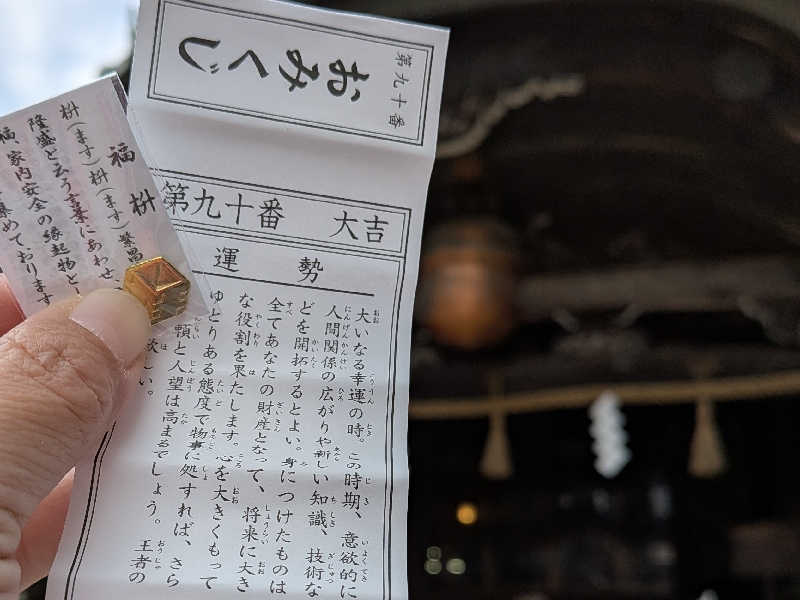 第九十番
おみくじ
第九十番 大吉
運勢
大いなる幸運の時。この時期、意欲的に
人間関係の広がりや新しい知識、技術な
どを開拓するとよい。身につけたものは
全てあなたの財産となって、将来に大き
な役割を果たします。心を大きくもって
ゆとりある態度で物事に処すれば、さら
頼と人望は高まるでしょう。王者の
欲しい。
福枡
枡(ます)枡(ます)繁昌
隆盛と云う言葉にあわせ、
福、家内安全の縁起物と
集めております